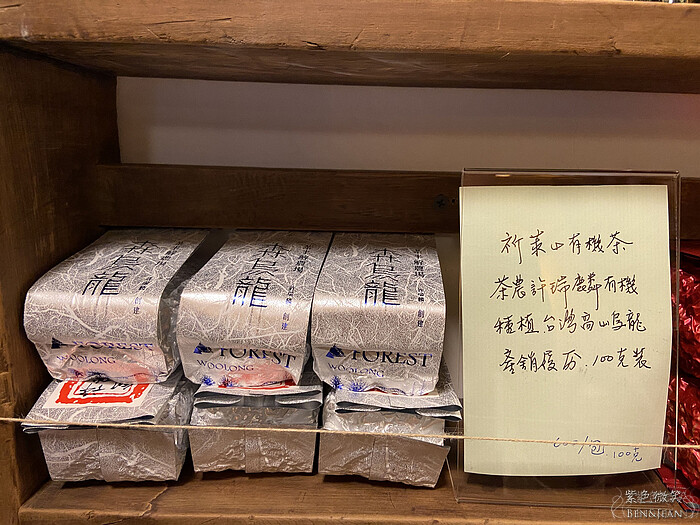 森烏龍
創建
FOREST
WOOLONG
森烏龍
創建
FOREST
WOOLONG
森烏龍
創建
FOREST
WOOLONG
祈萊山有機茶
茶農許瑞麟有機
種植台灣高山烏龍
產銷履历.100克裝
600/包 100克
紫色微笑
BEN&JEAN